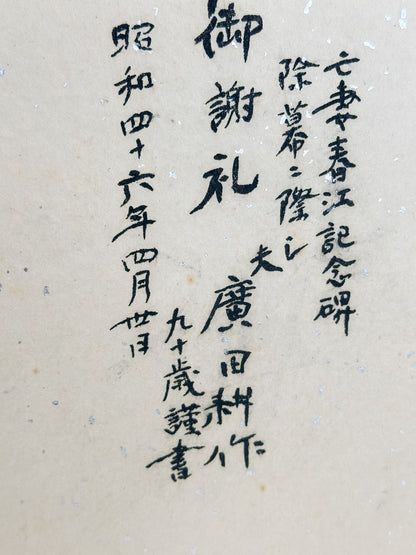 亡妻春江記念碑
除幕ニ際シ
御謝礼
夫
廣田耕作
九十歳謹書
昭和四十六年四月卅日